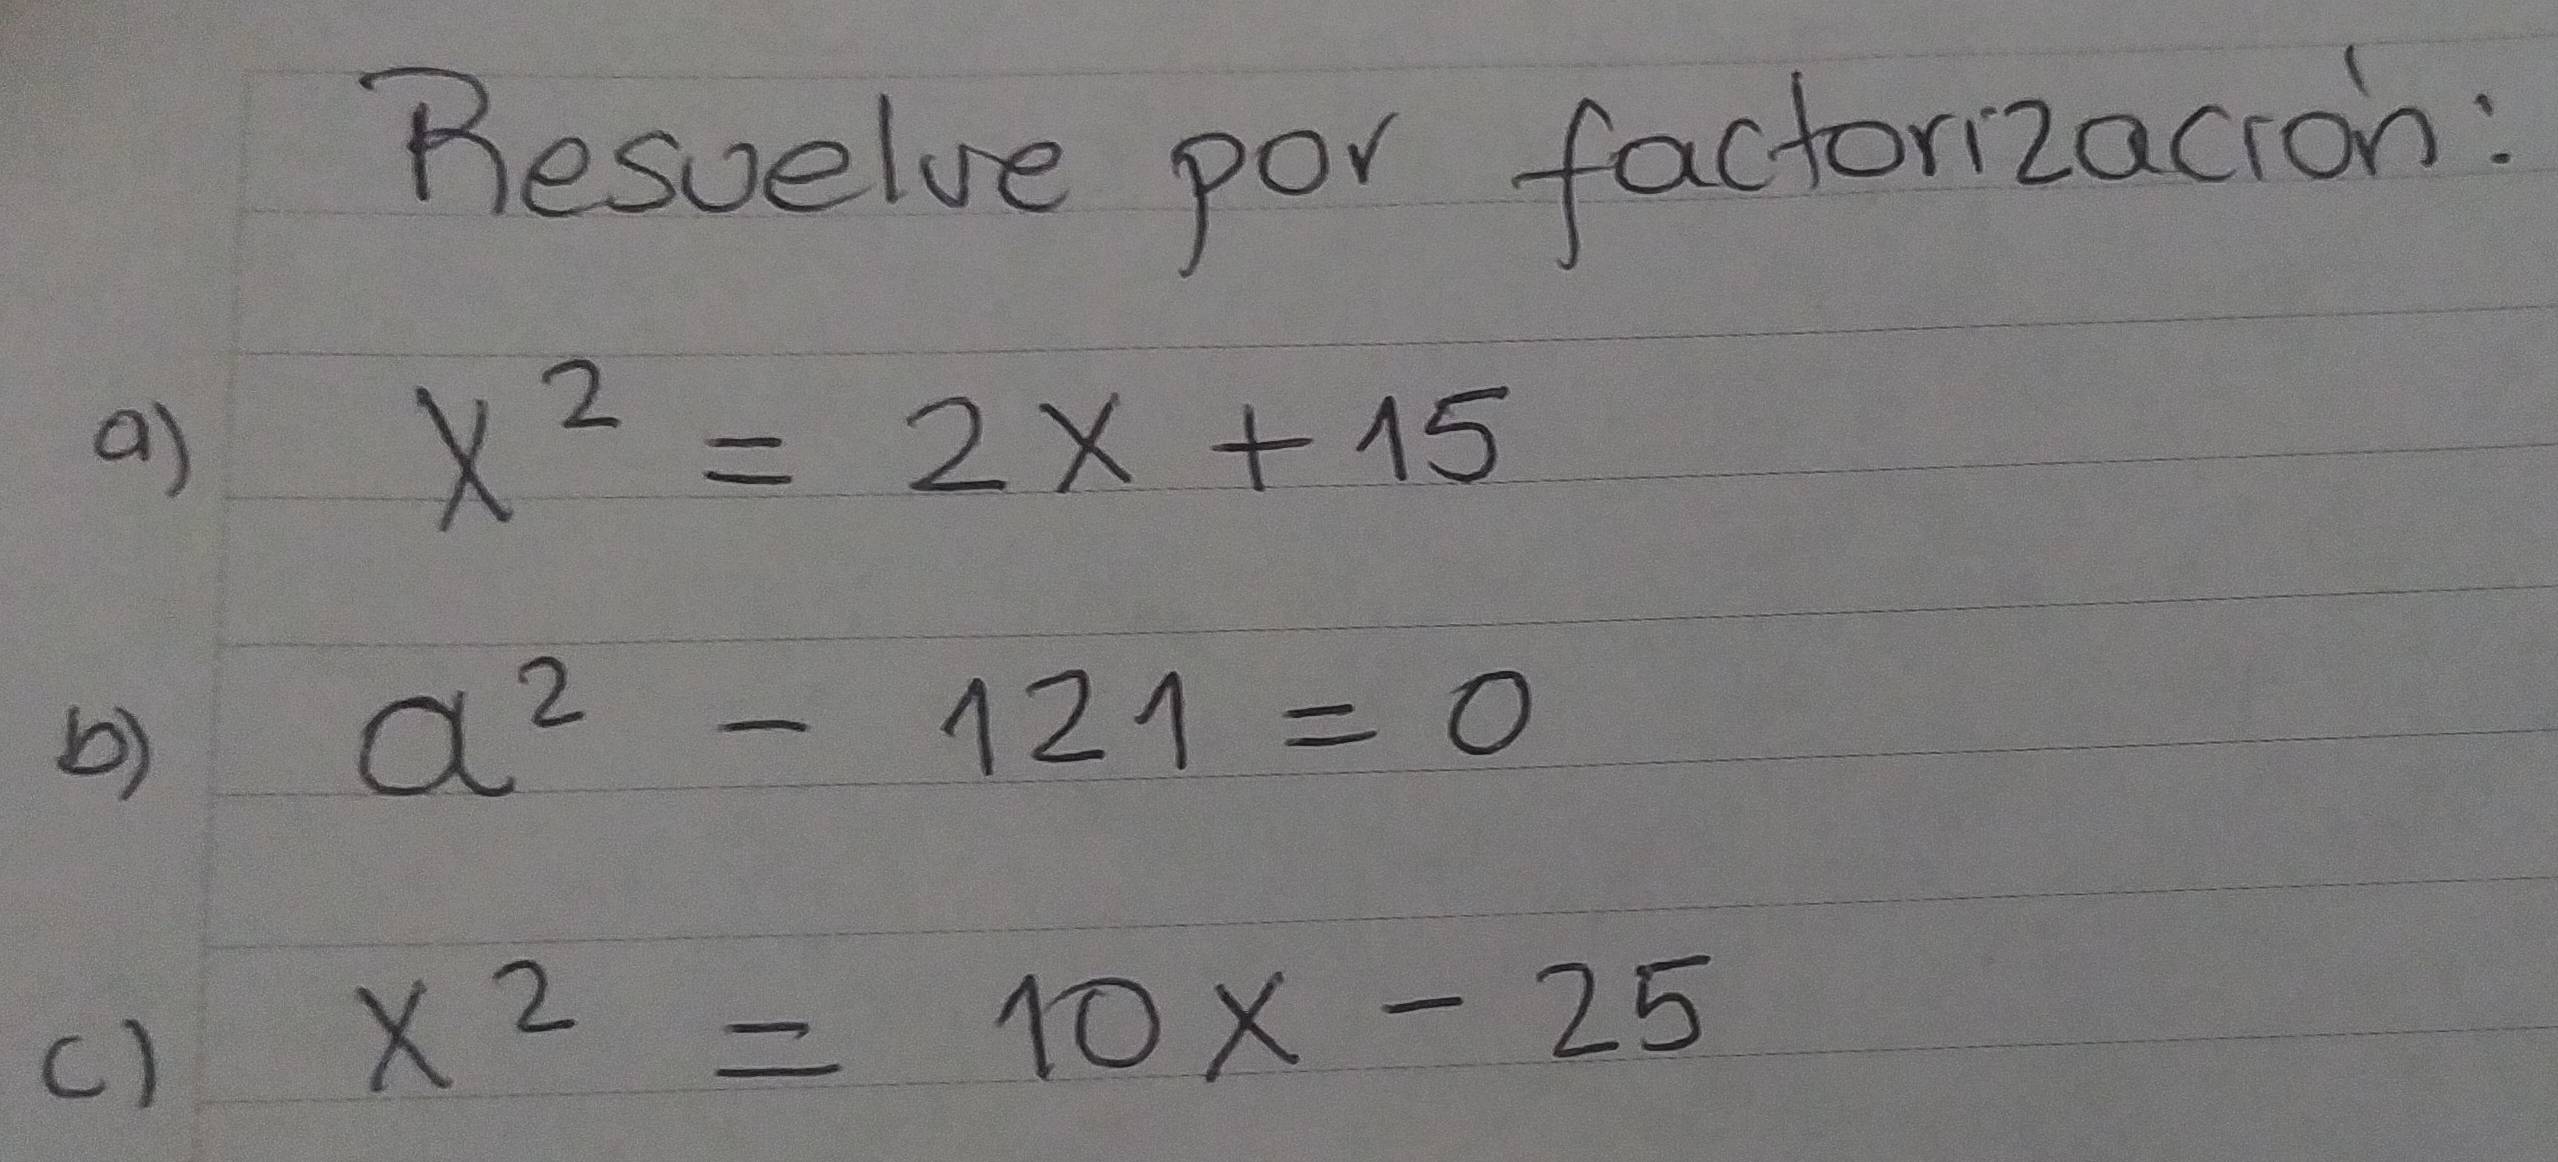 Resuelve por factorización:
a) x² = 2x + 15
b) a² - 121 = 0
c) x² = 10x - 25